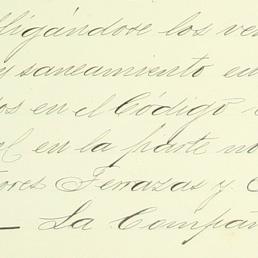 ligándose los ve
y saneamiento en
os en el Código
en la parte no
ores Terrazas y C
— La Compañ